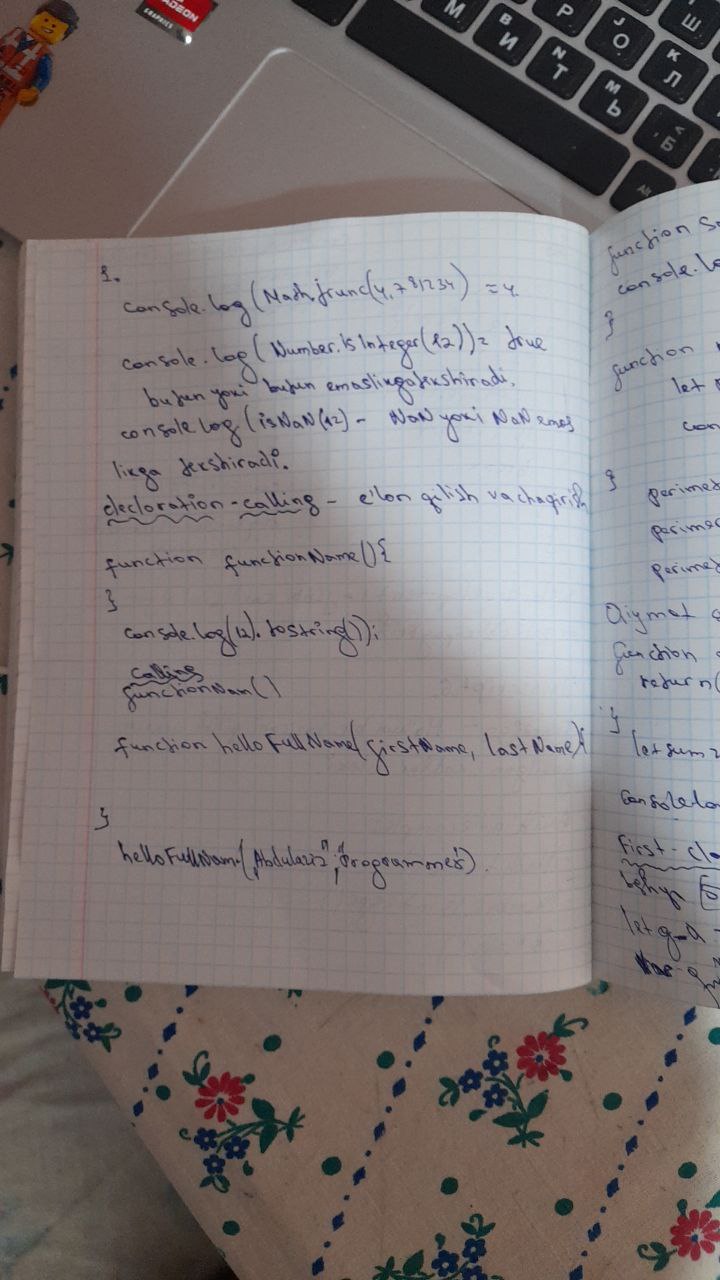 RADEON
GRAPHICS
М
В
И
N
Т
М
Ь
Р
J
О
К
Л
Ш
<
Б
Alt
1.
console.log(Math.trunc(4,781234) = 4
console.log(Number.isInteger(12)) = true
butun yoki butun emasligatekshiradi.
console log(isNaN(12) - NaN yoki NaN emas
likga tekshiradi.
decloration - calling - e'lon qilish va chaqirish
function functionName(){
}
console.log(12).tostring());
calling
functionNam()
function helloFullName(firstName, lastName){
}
helloFullNam("Abdulaziz","Programmer")
function
console.lo
}
function
let
con
}
perimet
perimet
perimet
Qiymat
function
return(
}
let sum =
Console.lo
First - cla
let g_a